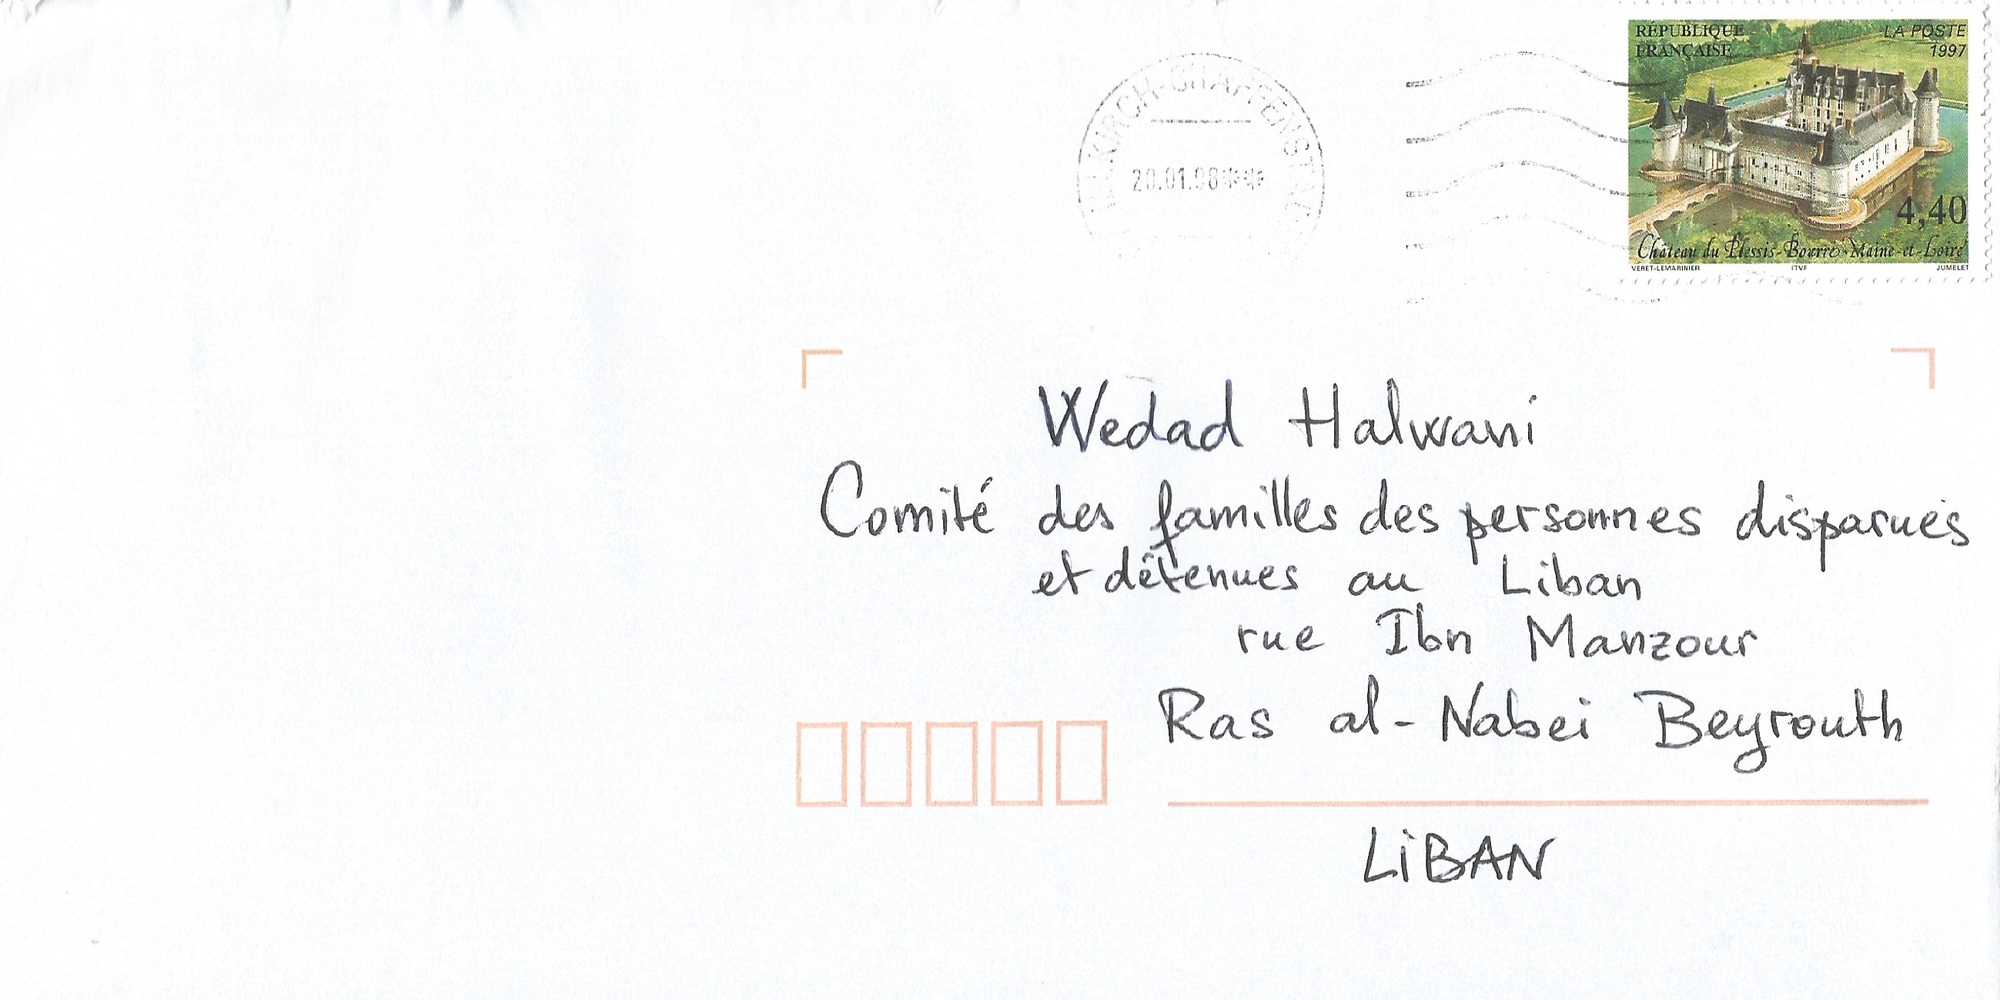 RÉPUBLIQUE FRANÇAISE
LA POSTE 1997
4,40
Château du Plessis-Bourré-Maine-et-Loire
VERET-LEMARINIER ITVF JUMELET
KIRCH-GRAFFENSTAD
20.01.98**
Wedad Halwani
Comité des familles des personnes disparues
et détenues au Liban
rue Ibn Manzour
Ras al-Nabei Beyrouth
LiBAN